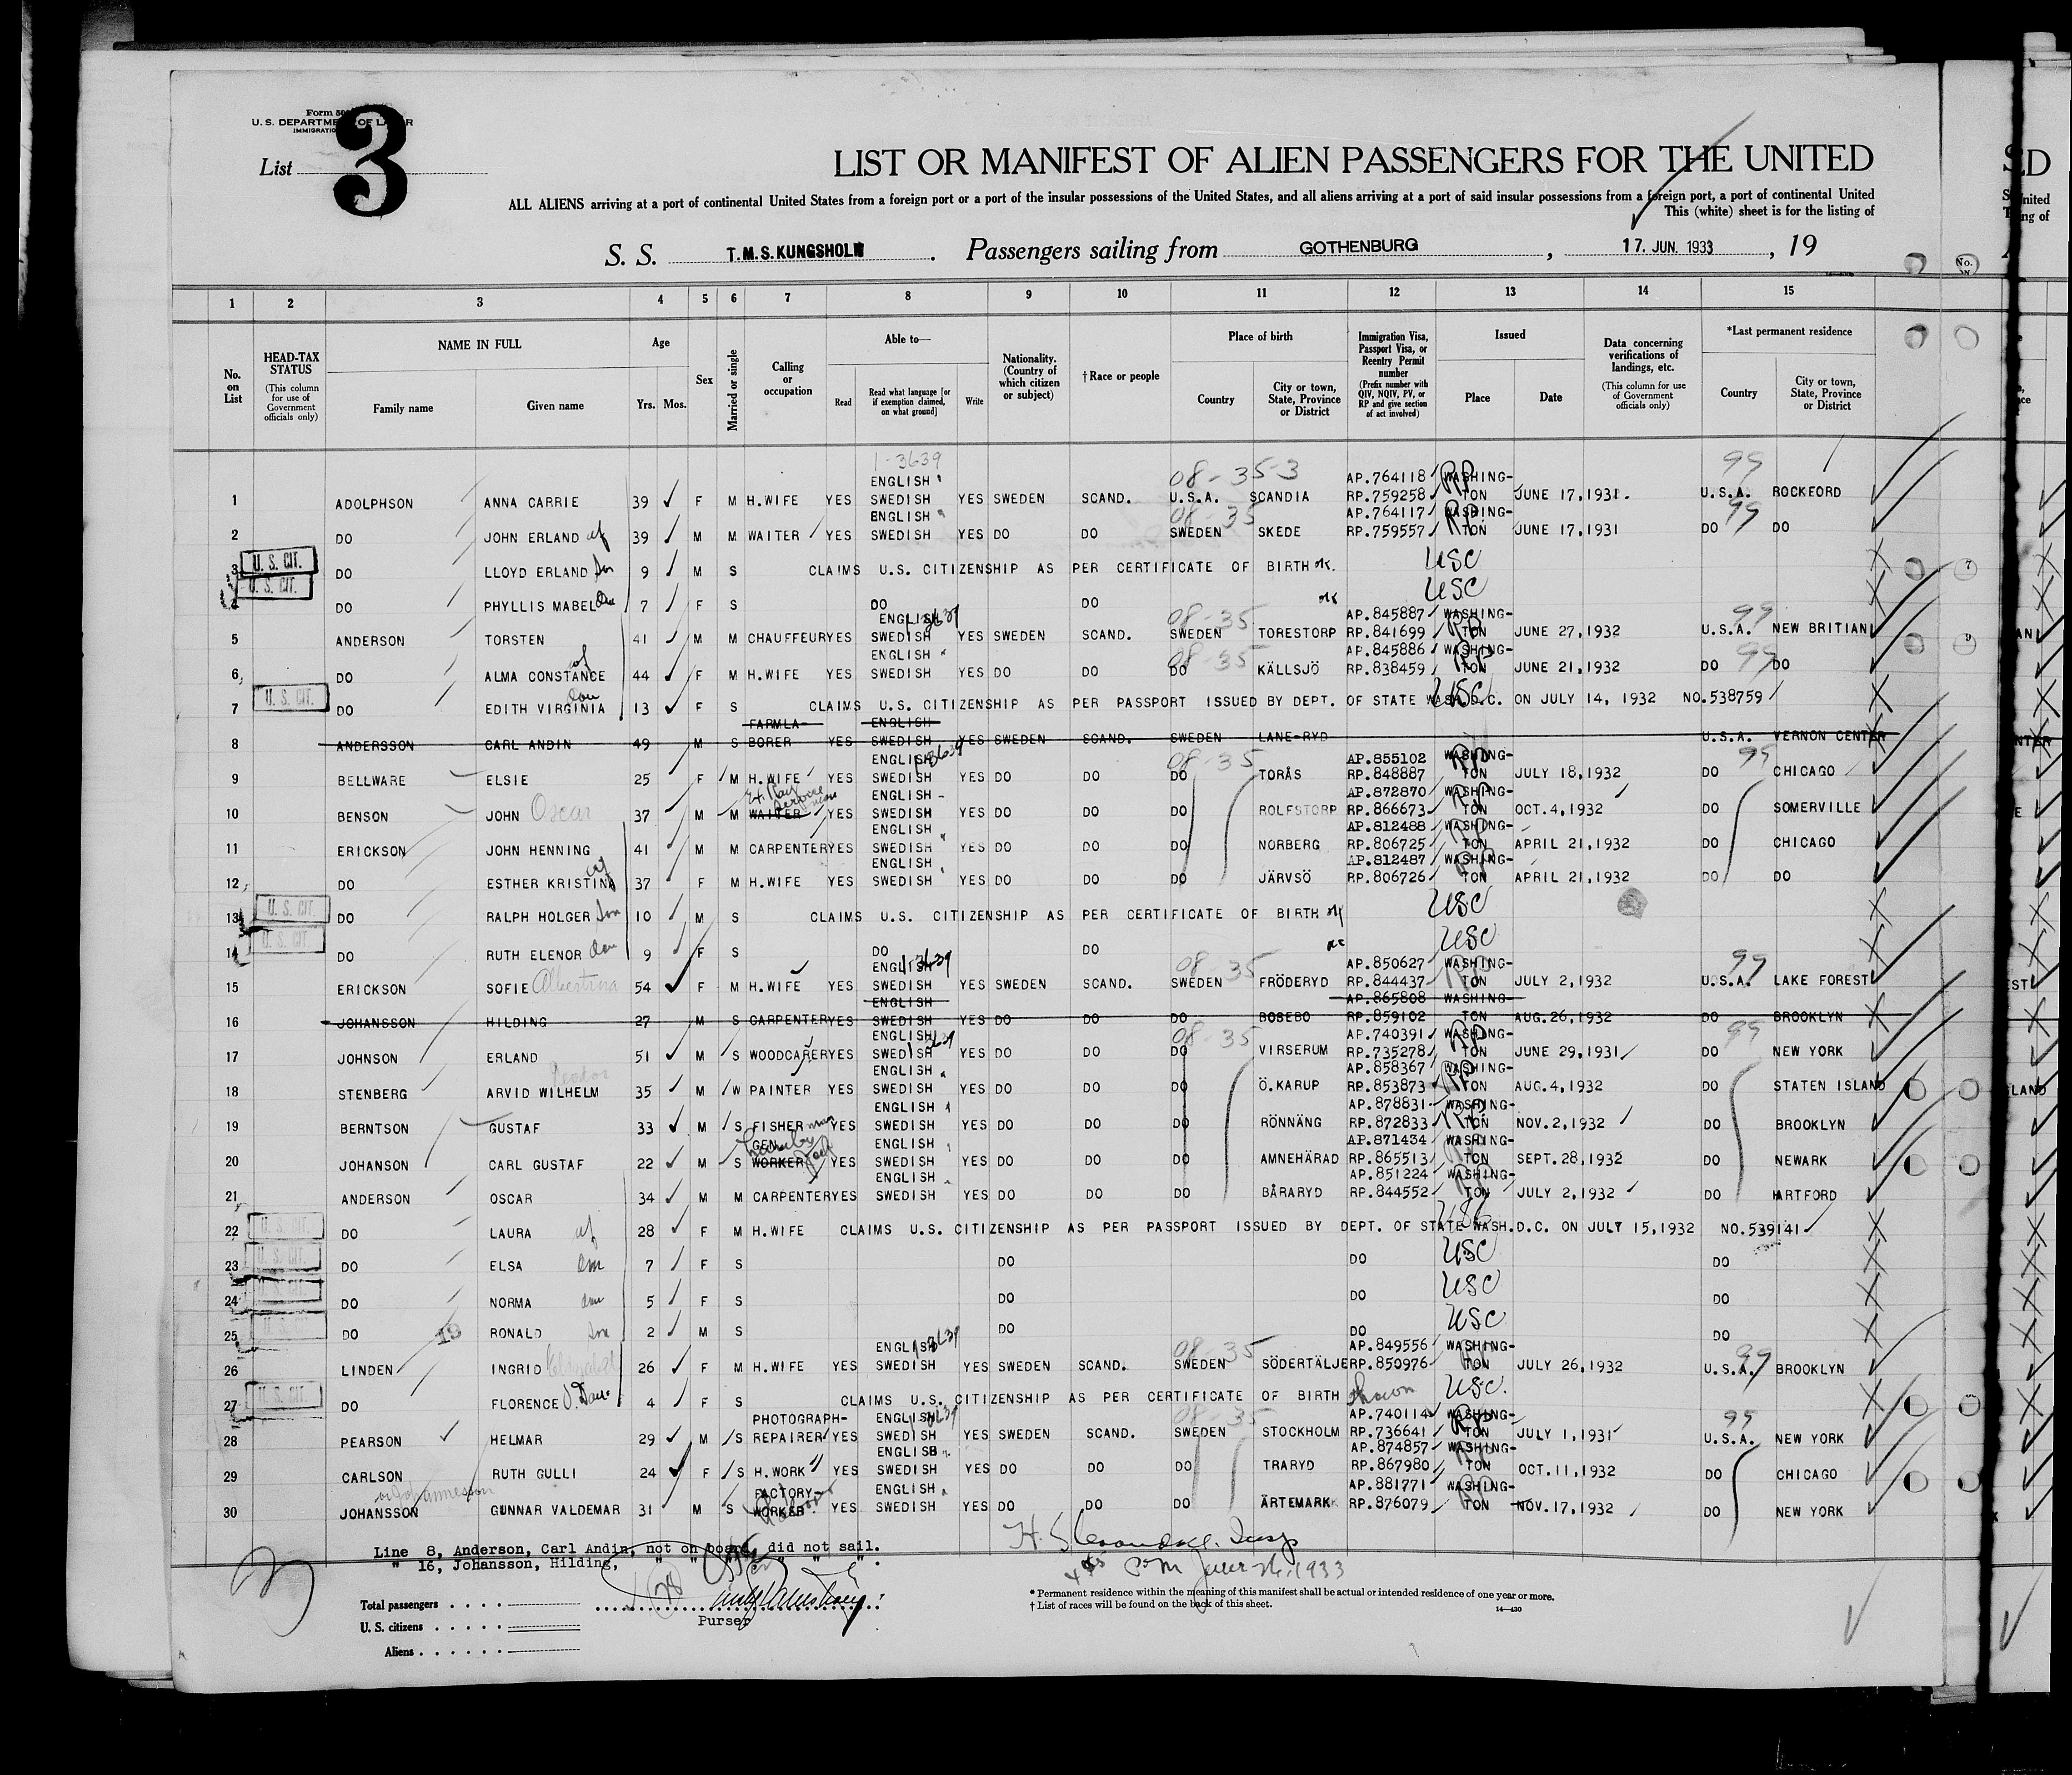 Form 50
U. S. DEPARTMENT OF LABOR
IMMIGRATION
List 3
LIST OR MANIFEST OF ALIEN PASSENGERS FOR THE UNITED
ALL ALIENS arriving at a port of continental United States from a foreign port or a port of the insular possessions of the United States, and all aliens arriving at a port of said insular possessions from a foreign port, a port of continental United
This (white) sheet is for the listing of
S. S. T.M.S. KUNGSHOLM . Passengers sailing from GOTHENBURG , 17. JUN. 1933 , 19
1 2 3 4 5 6 7 8 9 10 11 12 13 14 15
No. on List
HEAD-TAX STATUS (This column for use of Government officials only)
NAME IN FULL Family name Given name
Age Yrs. Mos.
Sex
Married or single
Calling or occupation
Able to— Read Read what language [or if exemption claimed, on what ground] Write
Nationality. (Country of which citizen or subject)
†Race or people
Place of birth Country City or town, State, Province or District
Immigration Visa, Passport Visa, or Reentry Permit number (Prefix number with QIV, NQIV, PV, or RP and give section of act involved)
Issued Place Date
Data concerning verifications of landings, etc. (This column for use of Government officials only)
*Last permanent residence Country City or town, State, Province or District
1-3639 08-35-3 99
1 ADOLPHSON ANNA CARRIE 39 F M H.WIFE YES ENGLISH SWEDISH YES SWEDEN SCAND. U.S.A. SCANDIA AP.764118 RP.759258 WASHINGTON RP JUNE 17,1931. U.S.A. ROCKFORD
2 DO JOHN ERLAND wf 39 M M WAITER YES ENGLISH SWEDISH YES DO DO 08-35 SWEDEN SKEDE AP.764117 RP.759557 WASHINGTON RP JUNE 17,1931 99 DO DO
3 U. S. CIT. DO LLOYD ERLAND Son 9 M S CLAIMS U.S. CITIZENSHIP AS PER CERTIFICATE OF BIRTH ok. USC
4 U. S. CIT. DO PHYLLIS MABEL Dau 7 F S DO DO ok USC
5 ANDERSON TORSTEN 41 M M CHAUFFEUR YES ENGLISH SWEDISH YES SWEDEN SCAND. 08-35 SWEDEN TORESTORP AP.845887 RP.841699 WASHINGTON RP JUNE 27,1932 99 U.S.A. NEW BRITIAN
6 DO ALMA CONSTANCE wf 44 F M H.WIFE YES ENGLISH SWEDISH YES DO DO 08-35 DO KÄLLSJÖ AP.845886 RP.838459 WASHINGTON RP JUNE 21,1932 99 DO DO
7 U. S. CIT. DO EDITH VIRGINIA dau 13 F S CLAIMS U.S. CITIZENSHIP AS PER PASSPORT ISSUED BY DEPT. OF STATE WASH.D.C. ON JULY 14, 1932 NO.538759 USC
8 ANDERSSON CARL ANDIN 49 M S FARMLABORER YES ENGLISH SWEDISH YES SWEDEN SCAND. SWEDEN LANE-RYD U.S.A. VERNON CENTER
9 BELLWARE ELSIE 25 F M H.WIFE YES ENGLISH SWEDISH YES DO DO 08-35 DO TORÅS AP.855102 RP.848887 WASHINGTON RP JULY 18,1932 99 DO CHICAGO
10 BENSON JOHN Oscar 37 M M WAITER YES ENGLISH SWEDISH YES DO DO DO ROLFSTORP AP.872870 RP.866673 WASHINGTON RP OCT.4,1932 DO SOMERVILLE
11 ERICKSON JOHN HENNING 41 M M CARPENTER YES ENGLISH SWEDISH YES DO DO DO NORBERG AP.812488 RP.806725 WASHINGTON RP APRIL 21,1932 DO CHICAGO
12 DO ESTHER KRISTINA wf 37 F M H.WIFE YES ENGLISH SWEDISH YES DO DO DO JÄRVSÖ AP.812487 RP.806726 WASHINGTON RP APRIL 21,1932 DO DO
13 U. S. CIT. DO RALPH HOLGER Son 10 M S CLAIMS U.S. CITIZENSHIP AS PER CERTIFICATE OF BIRTH ok USC
14 U. S. CIT. DO RUTH ELENOR dau 9 F S DO DO ok USC
15 ERICKSON SOFIE Albertina 54 F M H.WIFE YES ENGLISH SWEDISH YES SWEDEN SCAND. 08-35 SWEDEN FRÖDERYD AP.850627 RP.844437 WASHINGTON RP JULY 2,1932 99 U.S.A. LAKE FOREST
16 JOHANSSON HILDING 27 M S CARPENTER YES ENGLISH SWEDISH YES DO DO DO BOSEBO AP.865808 RP.859102 WASHINGTON AUG.26,1932 DO BROOKLYN
17 JOHNSON ERLAND 51 M S WOODCARER YES ENGLISH SWEDISH YES DO DO 08-35 DO VIRSERUM AP.740391 RP.735278 WASHINGTON RP JUNE 29,1931 99 DO NEW YORK
18 STENBERG ARVID WILHELM 35 M W PAINTER YES ENGLISH SWEDISH YES DO DO DO Ö.KARUP AP.858367 RP.853873 WASHINGTON RP AUG.4,1932 DO STATEN ISLAND
19 BERNTSON GUSTAF 33 M S FISHERman YES ENGLISH SWEDISH YES DO DO DO RÖNNÄNG AP.878831 RP.872833 WASHINGTON RP NOV.2,1932 DO BROOKLYN
20 JOHANSON CARL GUSTAF 22 M S GEN. WORKER YES ENGLISH SWEDISH YES DO DO DO AMNEHÄRAD AP.871434 RP.865513 WASHINGTON RP SEPT.28,1932 DO NEWARK
21 ANDERSON OSCAR 34 M M CARPENTER YES ENGLISH SWEDISH YES DO DO DO BÅRARYD AP.851224 RP.844552 WASHINGTON RP JULY 2,1932 DO HARTFORD
22 U. S. CIT. DO LAURA wf 28 F M H.WIFE CLAIMS U.S. CITIZENSHIP AS PER PASSPORT ISSUED BY DEPT. OF STATE WASH.D.C. ON JULY 15,1932 NO.539141 USC
23 U. S. CIT. DO ELSA dau 7 F S DO DO USC DO
24 DO NORMA dau 5 F S DO DO USC DO
25 DO RONALD Son 2 M S DO DO USC DO
26 LINDEN INGRID 26 F M H.WIFE YES ENGLISH SWEDISH YES SWEDEN SCAND. 08-35 SWEDEN SÖDERTÄLJE AP.849556 RP.850976 WASHINGTON JULY 26,1932 99 U.S.A. BROOKLYN
27 U. S. CIT. DO FLORENCE 4 F S CLAIMS U.S. CITIZENSHIP AS PER CERTIFICATE OF BIRTH shown USC.
28 PEARSON HELMAR 29 M S PHOTOGRAPH-REPAIRER YES ENGLISH SWEDISH YES SWEDEN SCAND. 08-35 SWEDEN STOCKHOLM AP.740114 RP.736641 WASHINGTON RP JULY 1,1931 99 U.S.A. NEW YORK
29 CARLSON RUTH GULLI 24 F S H.WORK YES ENGLISH SWEDISH YES DO DO DO TRARYD AP.874857 RP.867980 WASHINGTON OCT.11,1932 DO CHICAGO
or Johannesson
30 JOHANSSON GUNNAR VALDEMAR 31 M S FACTORY-WORKER YES ENGLISH SWEDISH YES DO DO DO ÄRTEMARK AP.881771 RP.876079 WASHINGTON RP NOV.17,1932 DO NEW YORK
Line 8, Anderson, Carl Andin, not on board, did not sail.
" 16, Johansson, Hilding, " " " " " ".
Total passengers
U. S. citizens
Aliens
Purser
June 26, 1933
* Permanent residence within the meaning of this manifest shall be actual or intended residence of one year or more.
† List of races will be found on the back of this sheet.
14—430